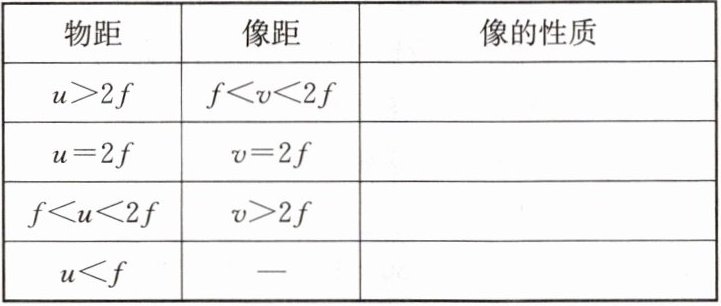 物距 像距 像的性质
u>2f f<v<2f
u=2f v=2f
f<u<2f v>2f
u<f —